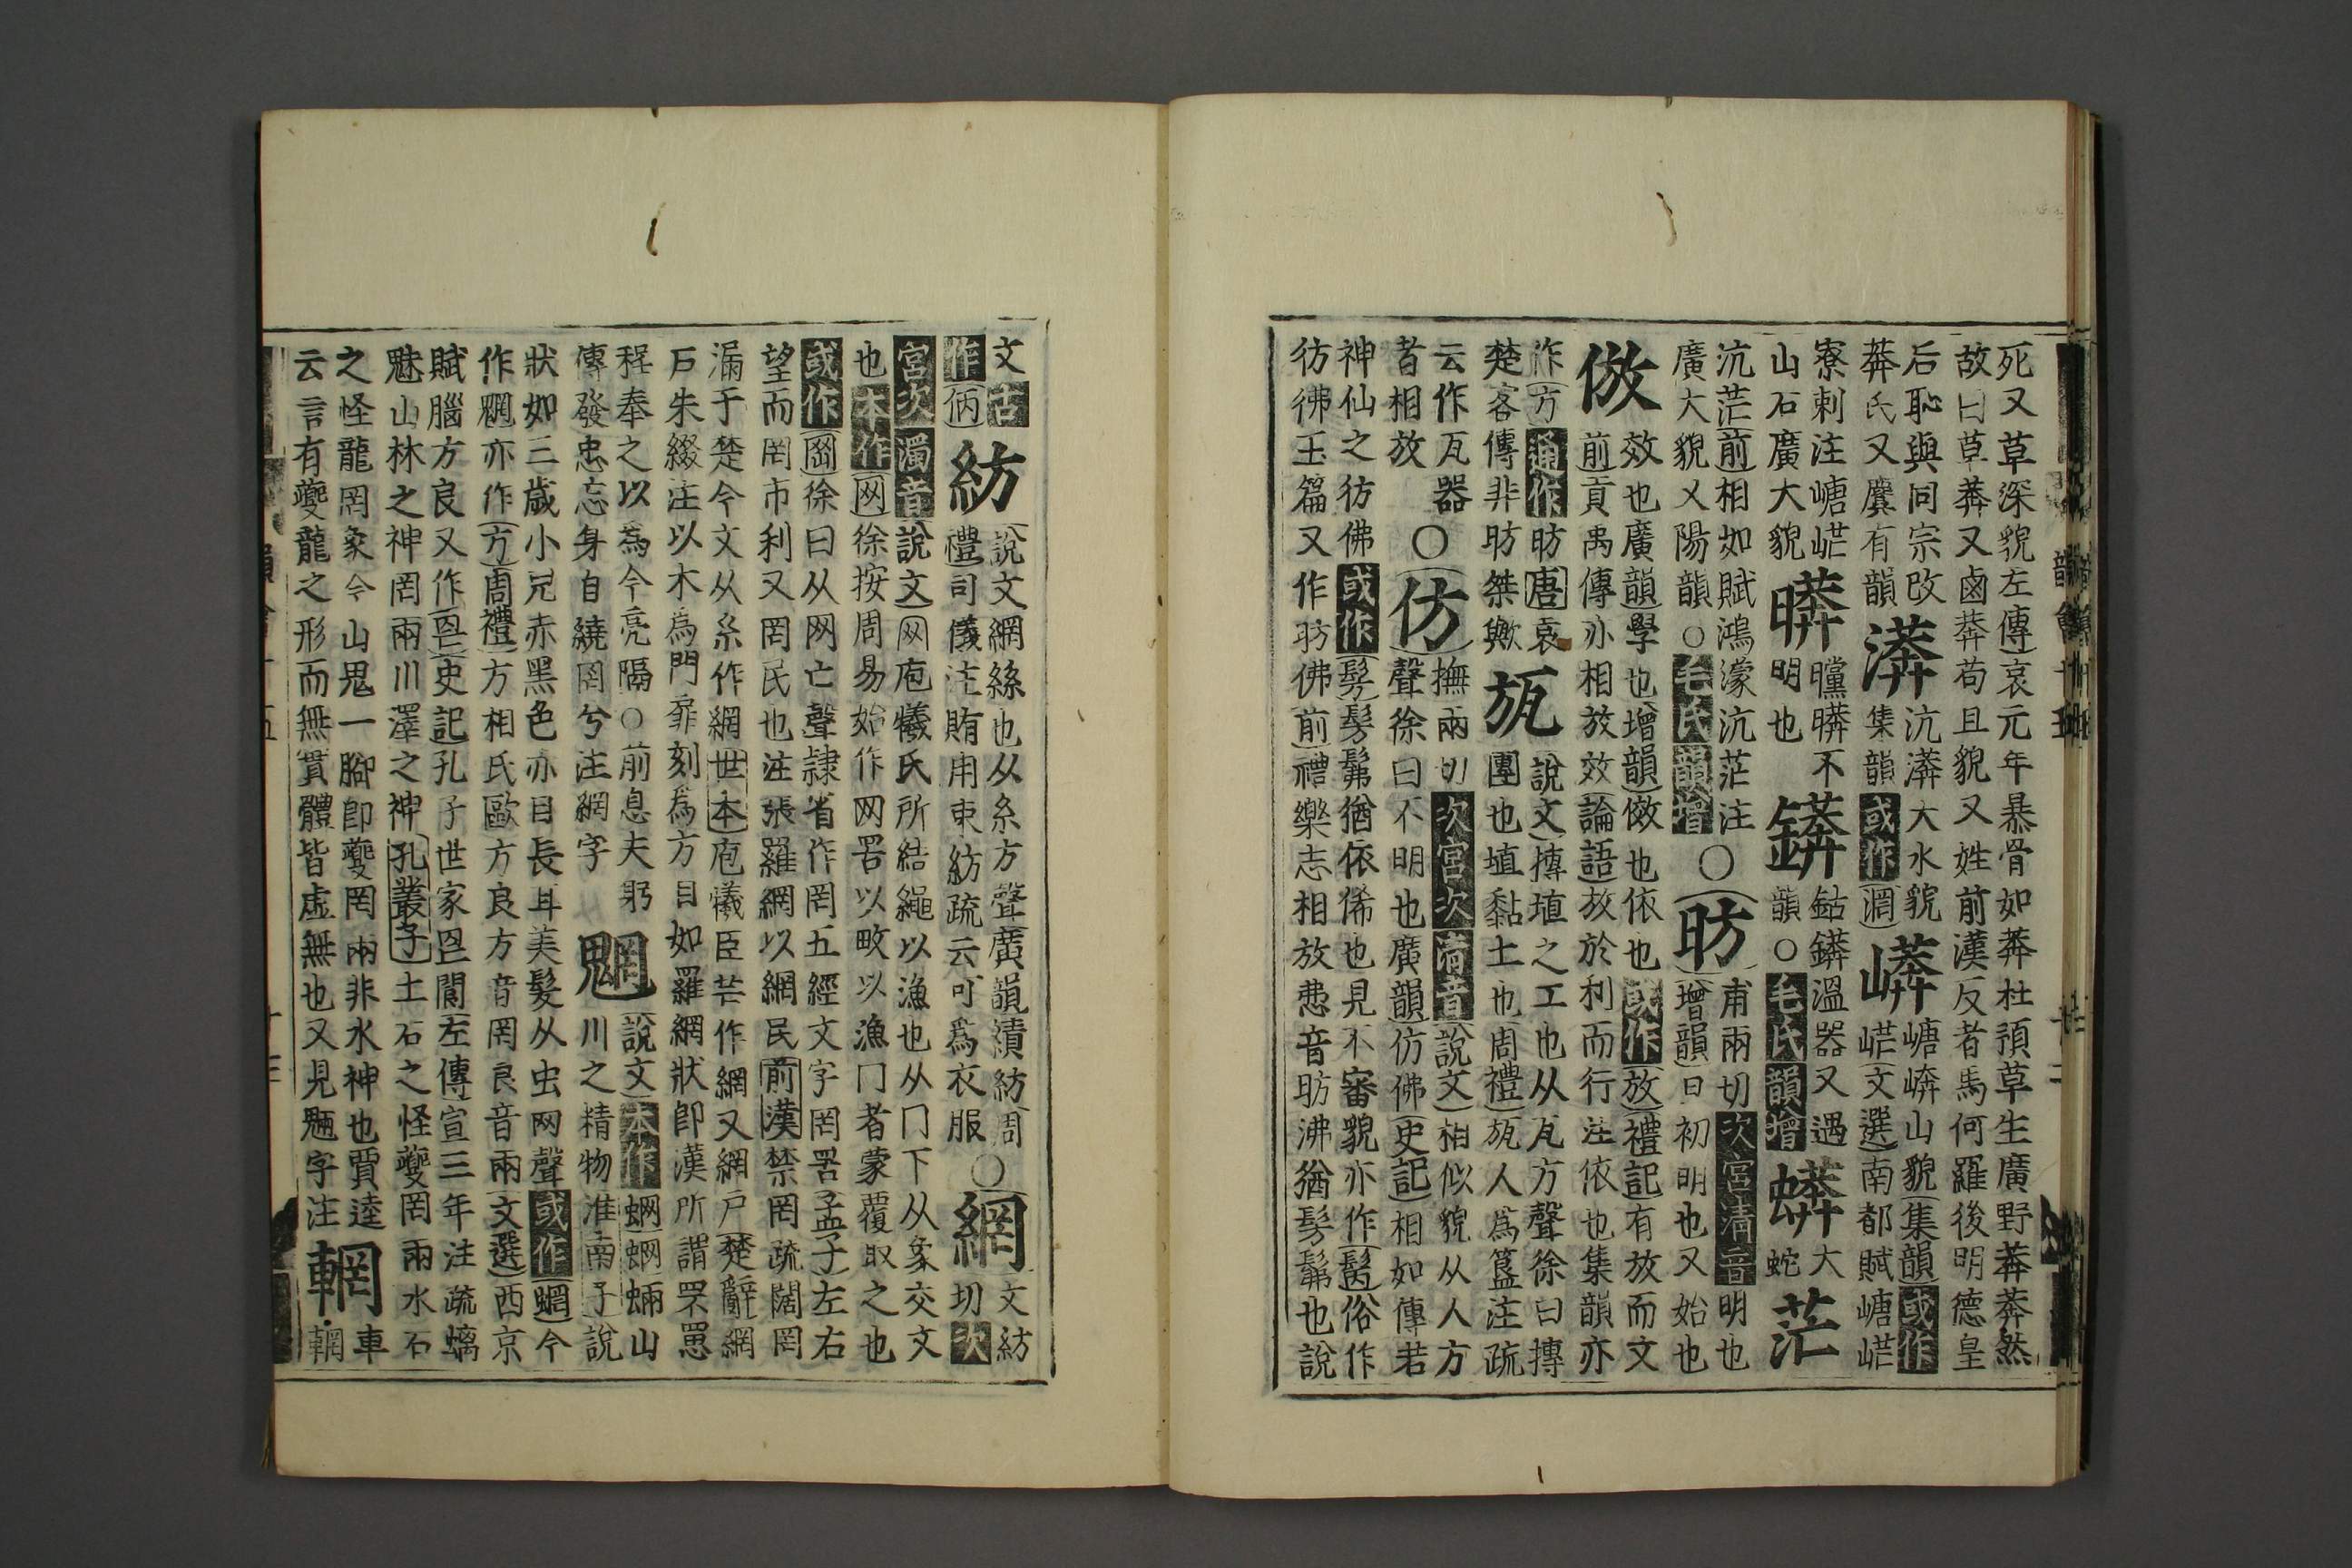 死又草深貌左傳哀元年暴骨如莽杜預草生廣野莽莽然
故曰草莽又鹵莽苟且貌又姓前漢反者馬何羅後明德皇
后恥與同宗改
莽氏又麌有韻
漭
沆漭大水貌
集韻或作㴏
㟿
嵣㟿山貌集韻或作
㟐文選南都賦嵣㟐
寮刺注嵣㟐
山石廣大貌
㬒
矘㬒不
明也
鈷䥈溫器又遇
韻○毛氏韻增
蠎
大
蛇
茫
沆茫前相如賦鴻濛沆茫注
廣大貌又陽韻○毛氏韻增
○昉
甫兩切次宮清音明也
增韻日初明也又始也
倣
效也廣韻學也增韻做也依也或作放禮記有放而文
前貢禹傳亦相放效論語放於利而行注依也集韻亦
作方通作昉唐袁
楚客傳非昉桀歟
瓬
說文摶埴之工也从瓦方聲徐曰摶
團也埴黏土也周禮瓬人為簋注疏
云作瓦器
者相放
○仿
撫兩切次宮次清音說文相似貌从人方
聲徐曰不明也廣韻仿佛史記相如傳若
神仙之彷佛或作髣髣髴猶依俙也見不審貌亦作髩俗作
彷彿玉篇又作昉佛前禮樂志相放怫音昉沸猶髣髴也說
文古
作㑂
紡
說文網絲也从糸方聲廣韻績紡周
禮司儀注賄用束紡疏云可為衣服
○網
文紡
切次
宮次濁音說文网庖犧氏所結繩以漁也从冂下从象交文
也本作网徐按周易始作网罟以畋以漁冂者蒙覆取之也
或作罔徐曰从网亡聲隷省作罔五經文字罔罟孟子左右
望而罔市利又罔民也注張羅網以網民前漢禁罔疏闊罔
漏于楚今文从糸作網世本庖犧臣芒作網又網戶楚辭網
戶朱綴注以木為門扉刻為方目如羅網狀卽漢所謂罘罳
程奉之以為今亮隔○前息夫躬
傳發忠忘身自繞罔兮注網字
魍
說文本作蛧蛧蜽山
川之精物淮南子說
狀如三歲小兒赤黑色赤目長耳美髮从虫网聲或作蝄今
作魍亦作方周禮方相氏歐方良方音罔良音兩文選西京
賦腦方良又作罔史記孔子世家罔閬左傳宣三年注疏螭
魅山林之神罔兩川澤之神孔叢子土石之怪夔罔兩水石
之怪龍罔象今山鬼一脚卽夔罔兩非水神也賈逵
云言有夔龍之形而無實體皆虛無也又見魎字注
輞
車
輞